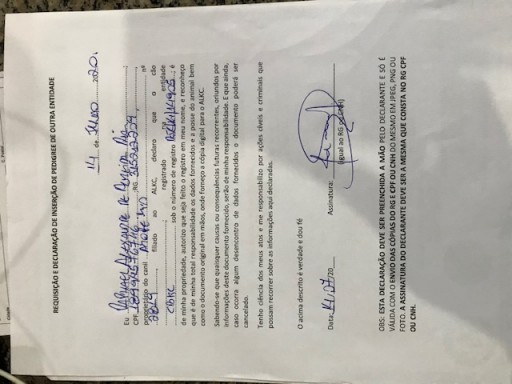 REQUISIÇÃO E DECLARAÇÃO DE INSERÇÃO DE PEDIGREE DE OUTRA ENTIDADE
14 de Julho 2020.
Eu
CPF RG nº
proprietário do canil filiado ao ALKC, declaro que o cão
registrado na entidade
CBKC sob o número de registro é
de minha propriedade, autorizo que seja feito o registro em meu nome, e reconheço
que é de minha total responsabilidade os dados fornecidos e a posse do animal bem
como o documento original em mãos, onde forneço a cópia digital para o ALKC.
Sabendo-se que quaisquer causas ou consequências futuras recorrentes, oriundos por
informações deste documento fornecido, serão de minha responsabilidade. E que ainda,
caso ocorra algum desencontro de dados fornecidos o documento poderá ser
cancelado.
Tenho ciência dos meus atos e me responsabilizo por ações cíveis e criminais que
possam recorrer sobre as informações aqui declaradas.
O acima descrito é verdade e dou fé
Data: 14/07/20 Assinatura:
(igual ao RG ou CNH)
OBS: ESTA DECLARAÇÃO DEVE SER PREENCHIDA A MÃO PELO DECLARANTE E SÓ É
VÁLIDA COM O ENVIO DAS CÓPIAS DO RG E CPF OU CNH DO MESMO EM JPEG, PNG OU
FOTO. A ASSINATURA DO DECLARANTE DEVE SER A MESMA QUE CONSTA NO RG CPF
OU CNH.